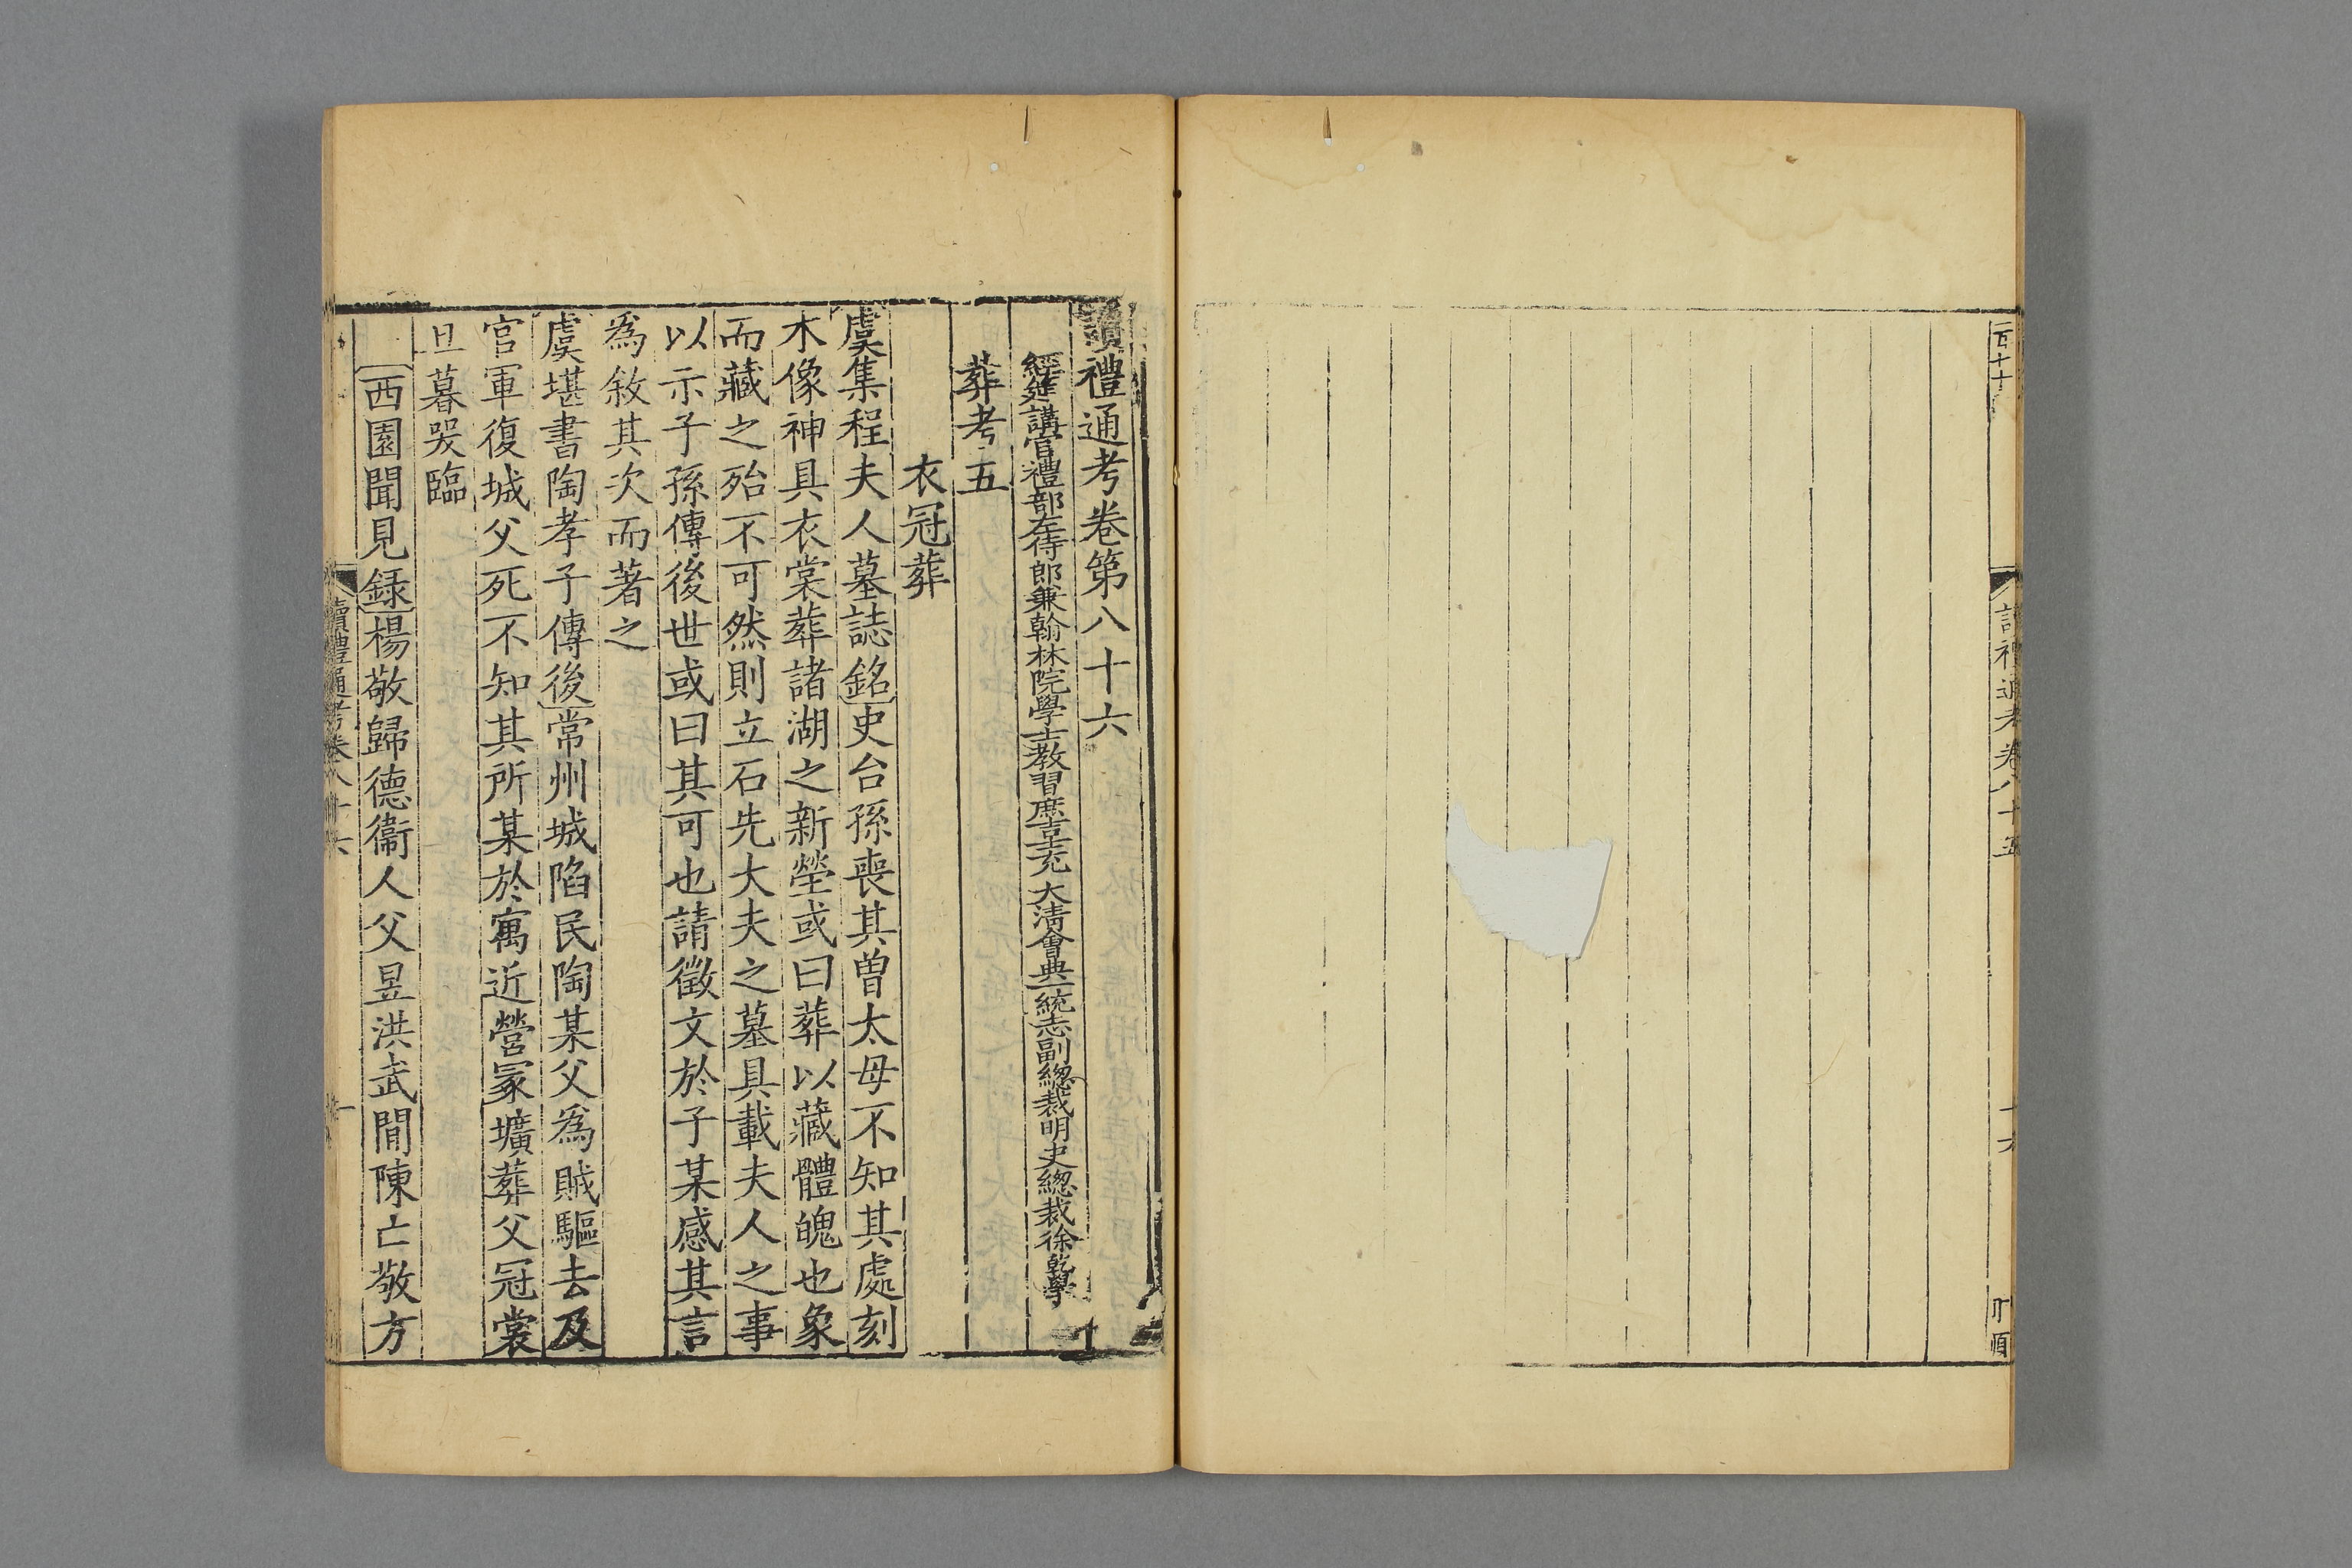 讀禮通考卷八十五
十六
讀禮通考卷第八十六
經筵講官禮部左侍郎兼翰林院學士教習庶吉士充 大清會典一統志副總裁明史總裁徐乾學
葬考五
衣冠葬
虞集程夫人墓誌銘史台孫喪其曾太母不知其處刻
木像神具衣裳葬諸湖之新塋或曰葬以藏體魄也象
而藏之殆不可然則立石先大夫之墓具載夫人之事
以示子孫傳後世或曰其可也請徵文於子某感其言
爲敘其次而著之
虞堪書陶孝子傳後常州城陷民陶某父爲賊驅去及
官軍復城父死不知其所某於寓近營冢壙葬父冠裳
旦暮哭臨
西園聞見録楊敬歸德衞人父昱洪武間陳亡敬方
讀禮通考卷八十六
一